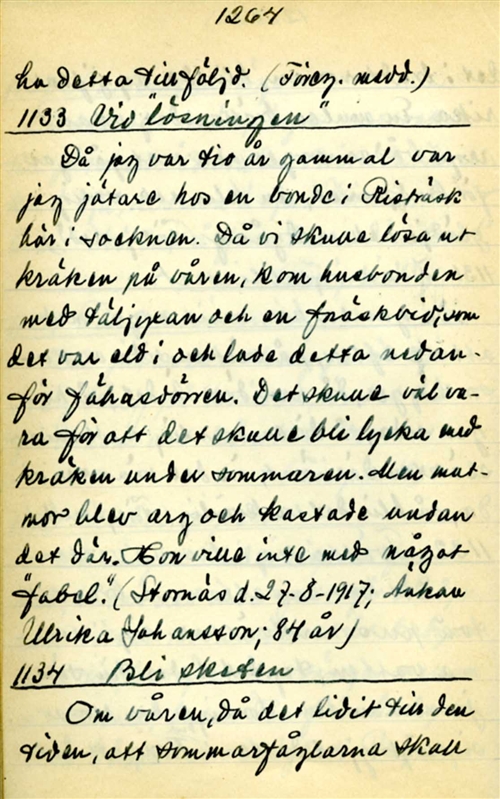 1264
ha detta till följd. (Förey. medd.)
1133 Vid "lösningen"
Då jag var tio år gammal var
jag jätare hos en bonde i Risträsk
här i socknen. Då vi skulle lösa ut
kräken på våren, kom husbonden
med täljyxan och en fnäskbid, som
det var eld i och lade detta nedan-
för fähusdörren. Det skulle väl va-
ra för att det skulle bli lycka med
kräken under sommaren. Men mat-
mor blev arg och kastade undan
det där. Hon ville inte med något
"fabel." (Stornäs d. 27-8-1917; Änkan
Ulrika Johansson; 84 år)
1134 Bli sketen
Om våren, då det lidit till den
tiden, att sommarfåglarna skall